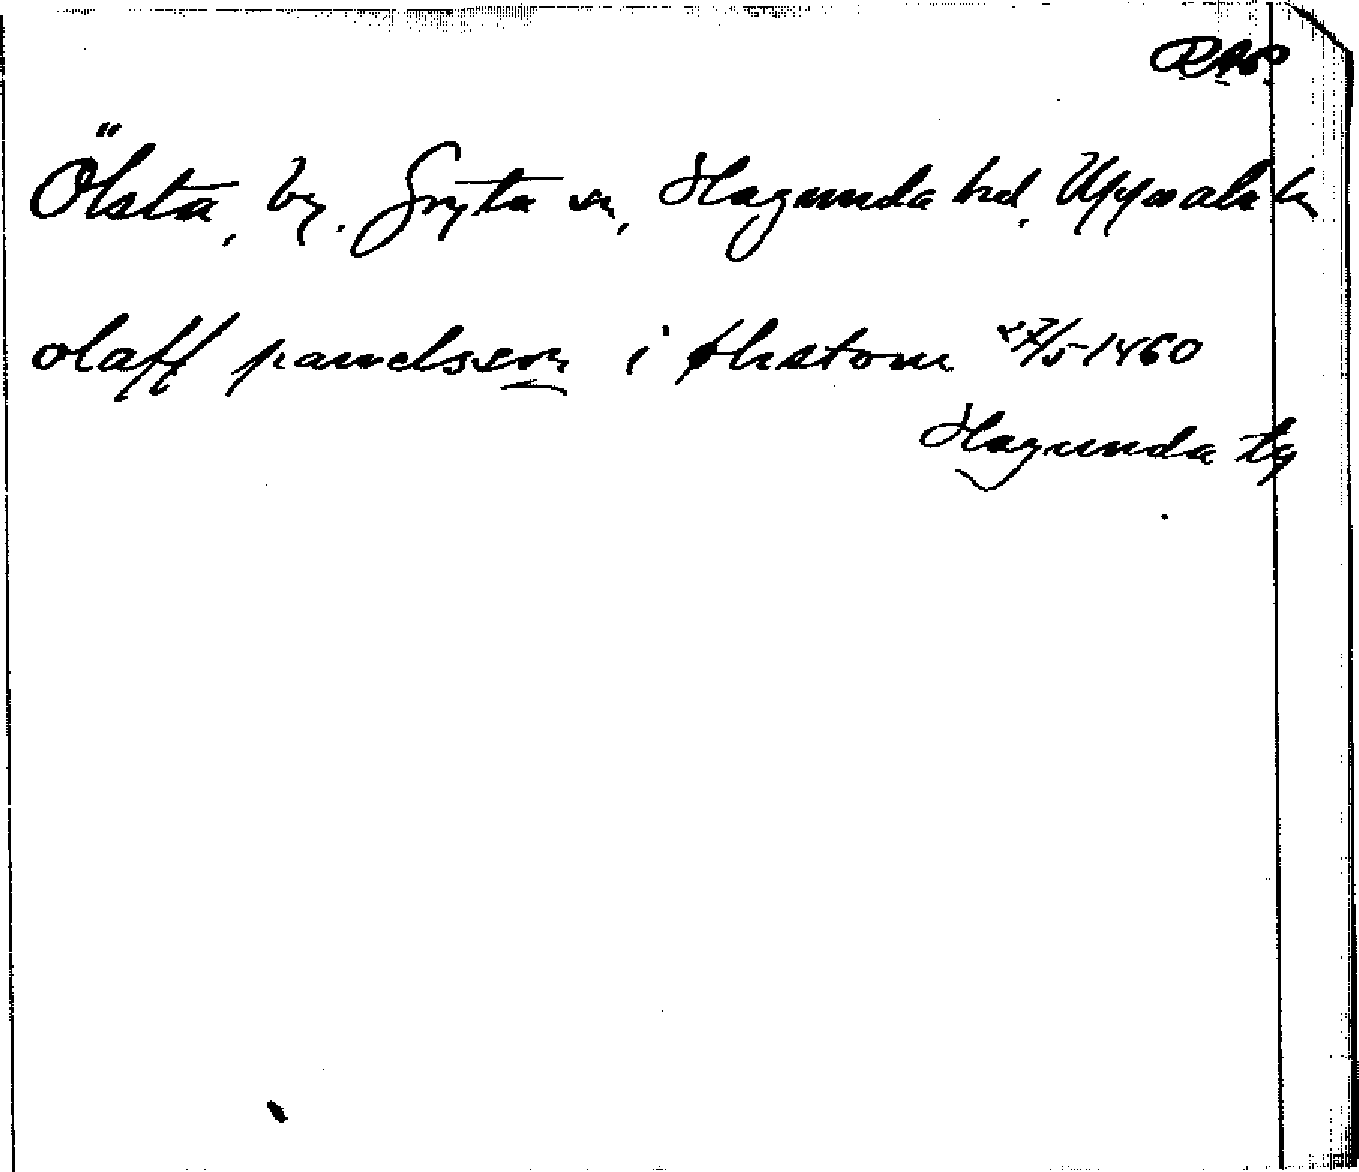 RAP
Ölsta, by. Gryta sn, Hagunda hd, Uppsala ln
olaff pawelsson i ølestom 27/5 1460
Hagunda tg